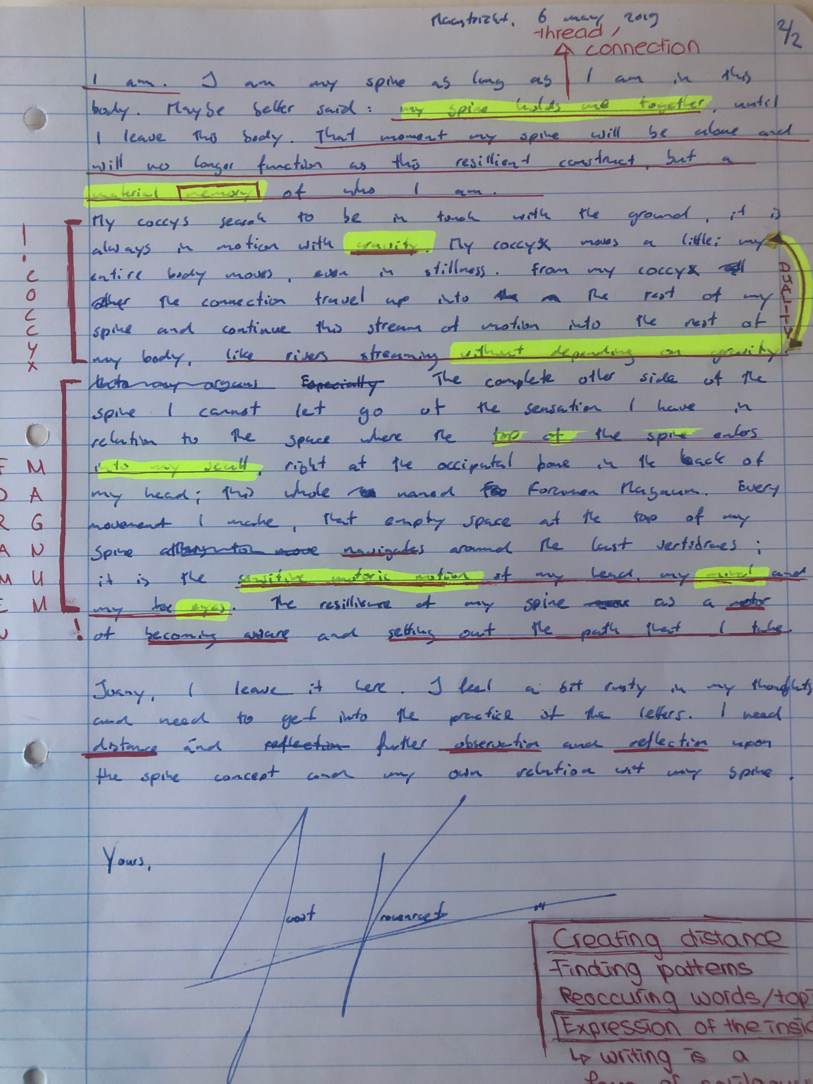 Maastricht, 6 may 2019
2/2
thread /
connection
I am. I am my spine as long as I am in this
body. Maybe better said: my spine holds me together, until
I leave this body. That moment my spine will be alone and
will no longer function as this resillient construct, but a
material memory of who I am.
1. COCCYX
My coccys search to be in touch with the ground, it is
always in motion with gravity. My coccyx moves a little; my
entire body moves, even in stillness. From my coccyx
the connection travel up into the rest of my
spine and continue this stream of motion into the rest of
my body, like rivers streaming without depending on gravity.
DUALITY
into my organs Especially The complete other side of the
spine I cannot let go of the sensation I have in
relation to the space where the top of the spine enters
into my scull, right at the occipital bone in the back of
my head; this whole named Foramen Magnum. Every
movement I make, that empty space at the top of my
spine navigates around the last vertibraes;
it is the sensitive motoric motion of my head, my mind and
my eyes. The resillience of my spine as a motor
of becoming aware and setting out the path that I take.
MAGNUM!
Juany, I leave it here. I feel a bit rusty in my thoughts
and need to get into the practice of the letters. I need
distance and reflection further observation and reflection upon
the spine concept and my own relation wit my spine.
Yours,
Creating distance
Finding patterns
Reoccuring words/topi
Expression of the insid
↳ writing is a